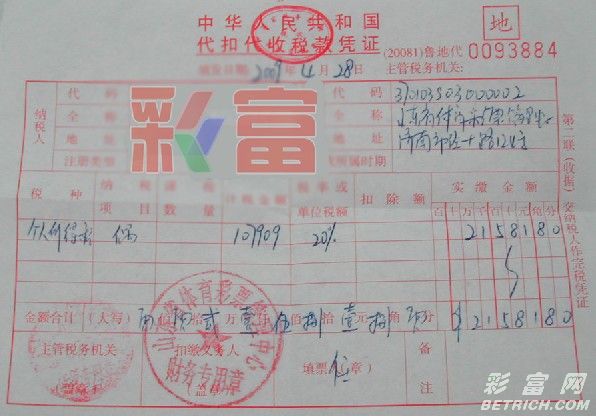 中华人民共和国
代扣代收税款凭证
地
(20081)鲁地代 0093884
填发日期 2009年4月28日 主管税务机关:
纳税人
代码 代码
全称 全称
地址 地址 济南市经十路
注册类型 税款所属时期
彩富
税种 纳税项目 课税数量 计税金额 税率或单位税额 扣除额 实缴金额
百十万千百十元角分
个人所得税 偶 107909 20% 2158180
金额合计 (大写) 佰 拾贰万壹仟伍佰捌拾壹元捌角 分 ¥2158180
主管税务机关 扣缴义务人 填票人(章) 备注
(盖章) (盖章)
山东省体育彩票管理中心
财务专用章
第二联(收据)交纳税人作完税凭证
彩富网
BETRICH.COM